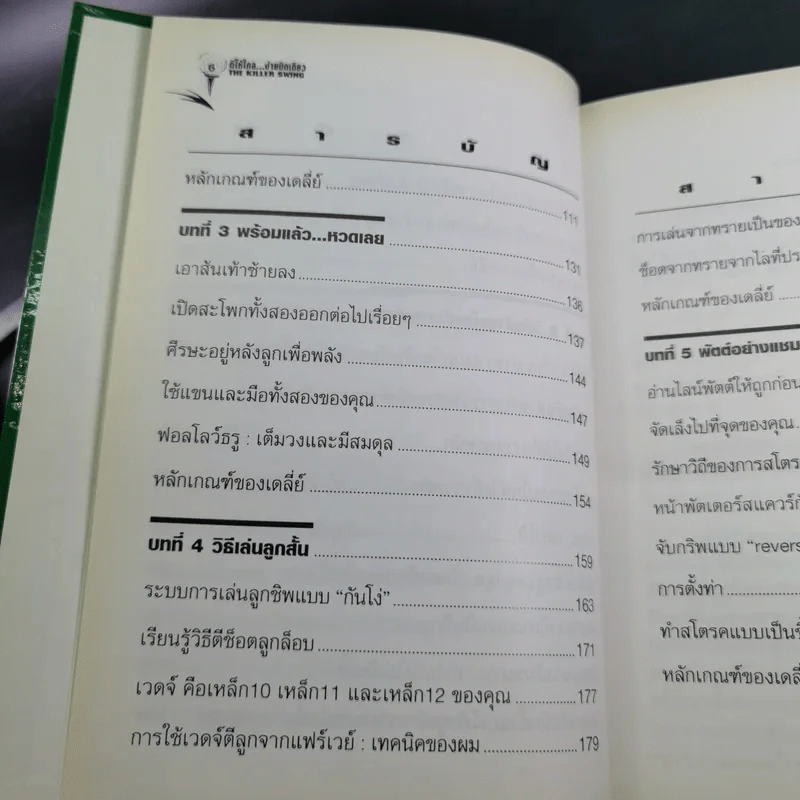 6 ตีให้ไกล...ง่ายนิดเดียว
THE KILLER SWING
ส า ร บั ญ
หลักเกณฑ์ของเดลี่ย์ 111
บทที่ 3 พร้อมแล้ว...หวดเลย 131
เอาส้นเท้าซ้ายลง 136
เปิดสะโพกทั้งสองออกต่อไปเรื่อยๆ 137
ศีรษะอยู่หลังลูกเพื่อพลัง 144
ใช้แขนและมือทั้งสองของคุณ 147
ฟอลโลว์ธรู : เต็มวงและมีสมดุล 149
หลักเกณฑ์ของเดลี่ย์ 154
บทที่ 4 วิธีเล่นลูกสั้น 159
ระบบการเล่นลูกชิพแบบ “กันโง่” 163
เรียนรู้วิธีตีช็อตลูกล็อบ 171
เวดจ์ คือเหล็ก10 เหล็ก11 และเหล็ก12 ของคุณ 177
การใช้เวดจ์ตีลูกจากแฟร์เวย์ : เทคนิคของผม 179
ส า
การเล่นจากทรายเป็นของ
ช็อตจากทรายจากไลที่ปร
หลักเกณฑ์ของเดลี่ย์
บทที่ 5 พัตต์อย่างแชม
อ่านไลน์พัตต์ให้ถูกก่อน
จัดเล็งไปที่จุดของคุณ
รักษาวิถีของการสโตร
หน้าพัตเตอร์สแควร์กั
จับกริพแบบ “revers
การตั้งท่า
ทำสโตรคแบบเป็นชิ้
หลักเกณฑ์ของเดลี่